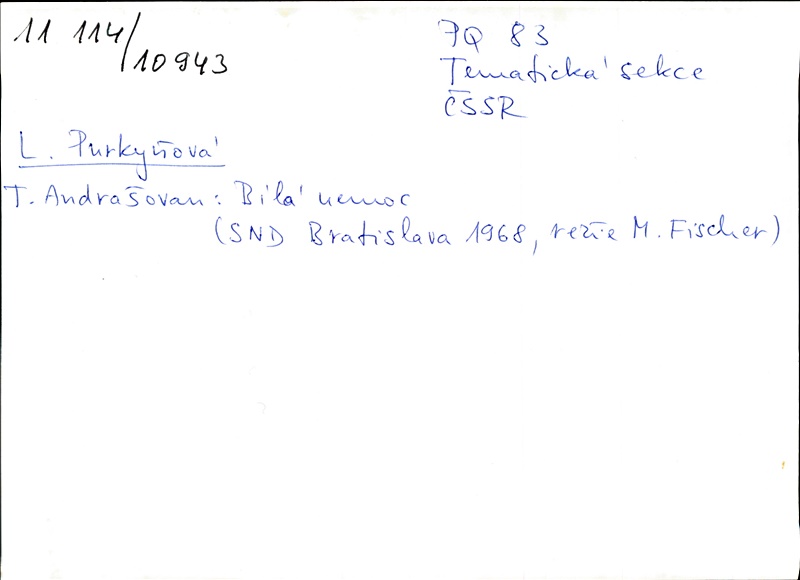 11 114/10943
PQ 83
Tematická sekce
ČSSR
L. Purkyňová
T. Andrašovan: Bílá nemoc
(SND Bratislava 1968, režie M. Fischer)